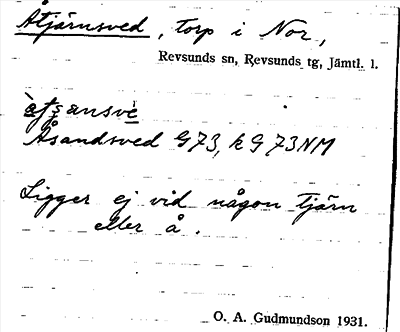 Åtjärnsved, torp i Nor,
Revsunds sn, Revsunds tg, Jämtl. l.
Åsandsved G73, k G 73 NM
Ligger ej vid någon tjärn
eller å.
O. A. Gudmundson 1931.